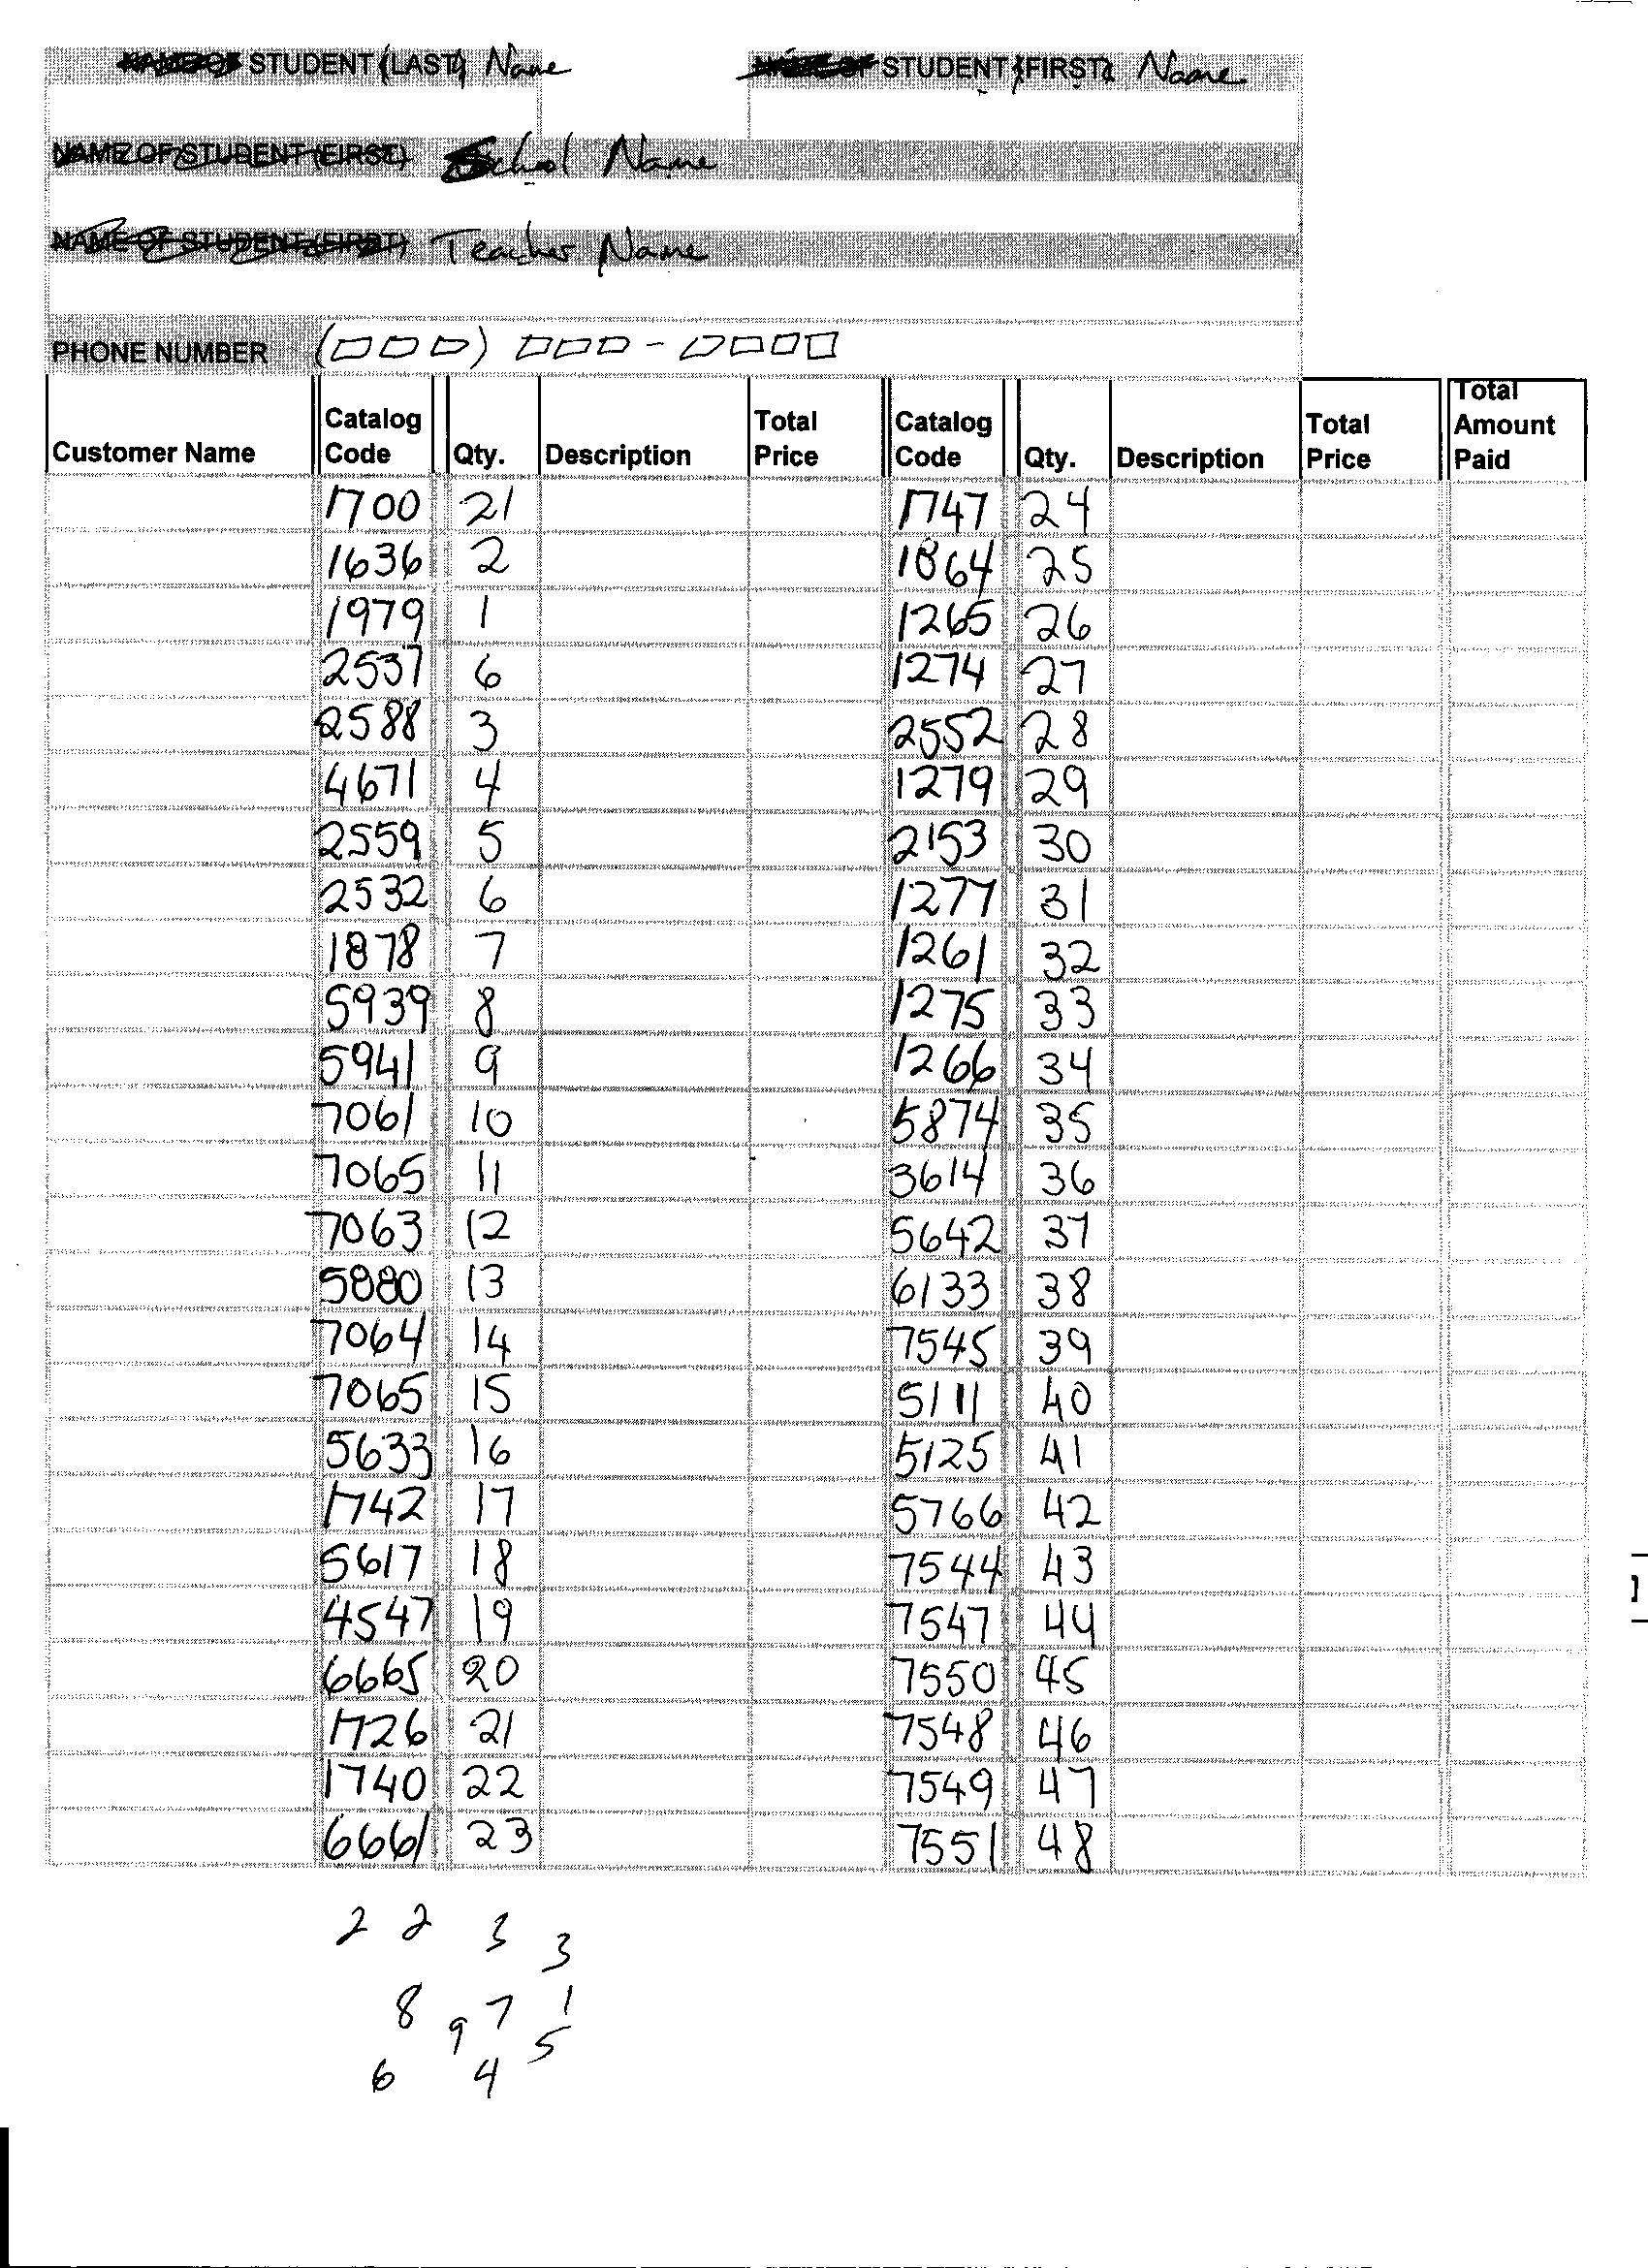 STUDENT (LAST) Name STUDENT (FIRST) Name
NAME OF STUDENT (FIRST) School Name
NAME OF STUDENT (FIRST) Teacher Name
PHONE NUMBER (▭▭▭) ▭▭▭-▭▭▭▭
Customer Name Catalog Code Qty. Description Total Price Catalog Code Qty. Description Total Price Total Amount Paid
1700 21 1747 24
1636 2 1864 25
1979 1 1265 26
2537 6 1274 27
2588 3 2552 28
4671 4 1279 29
2559 5 2153 30
2532 6 1277 31
1878 7 1261 32
5939 8 1275 33
5941 9 1266 34
7061 10 5874 35
7065 11 3614 36
7063 12 5642 37
5880 13 6133 38
7064 14 7545 39
7065 15 5111 40
5633 16 5125 41
1742 17 5766 42
5617 18 7544 43
4547 19 7547 44
6665 20 7550 45
1726 21 7548 46
1740 22 7549 47
6661 23 7551 48
2 2 3 3
8 9 7 1
5
6 4